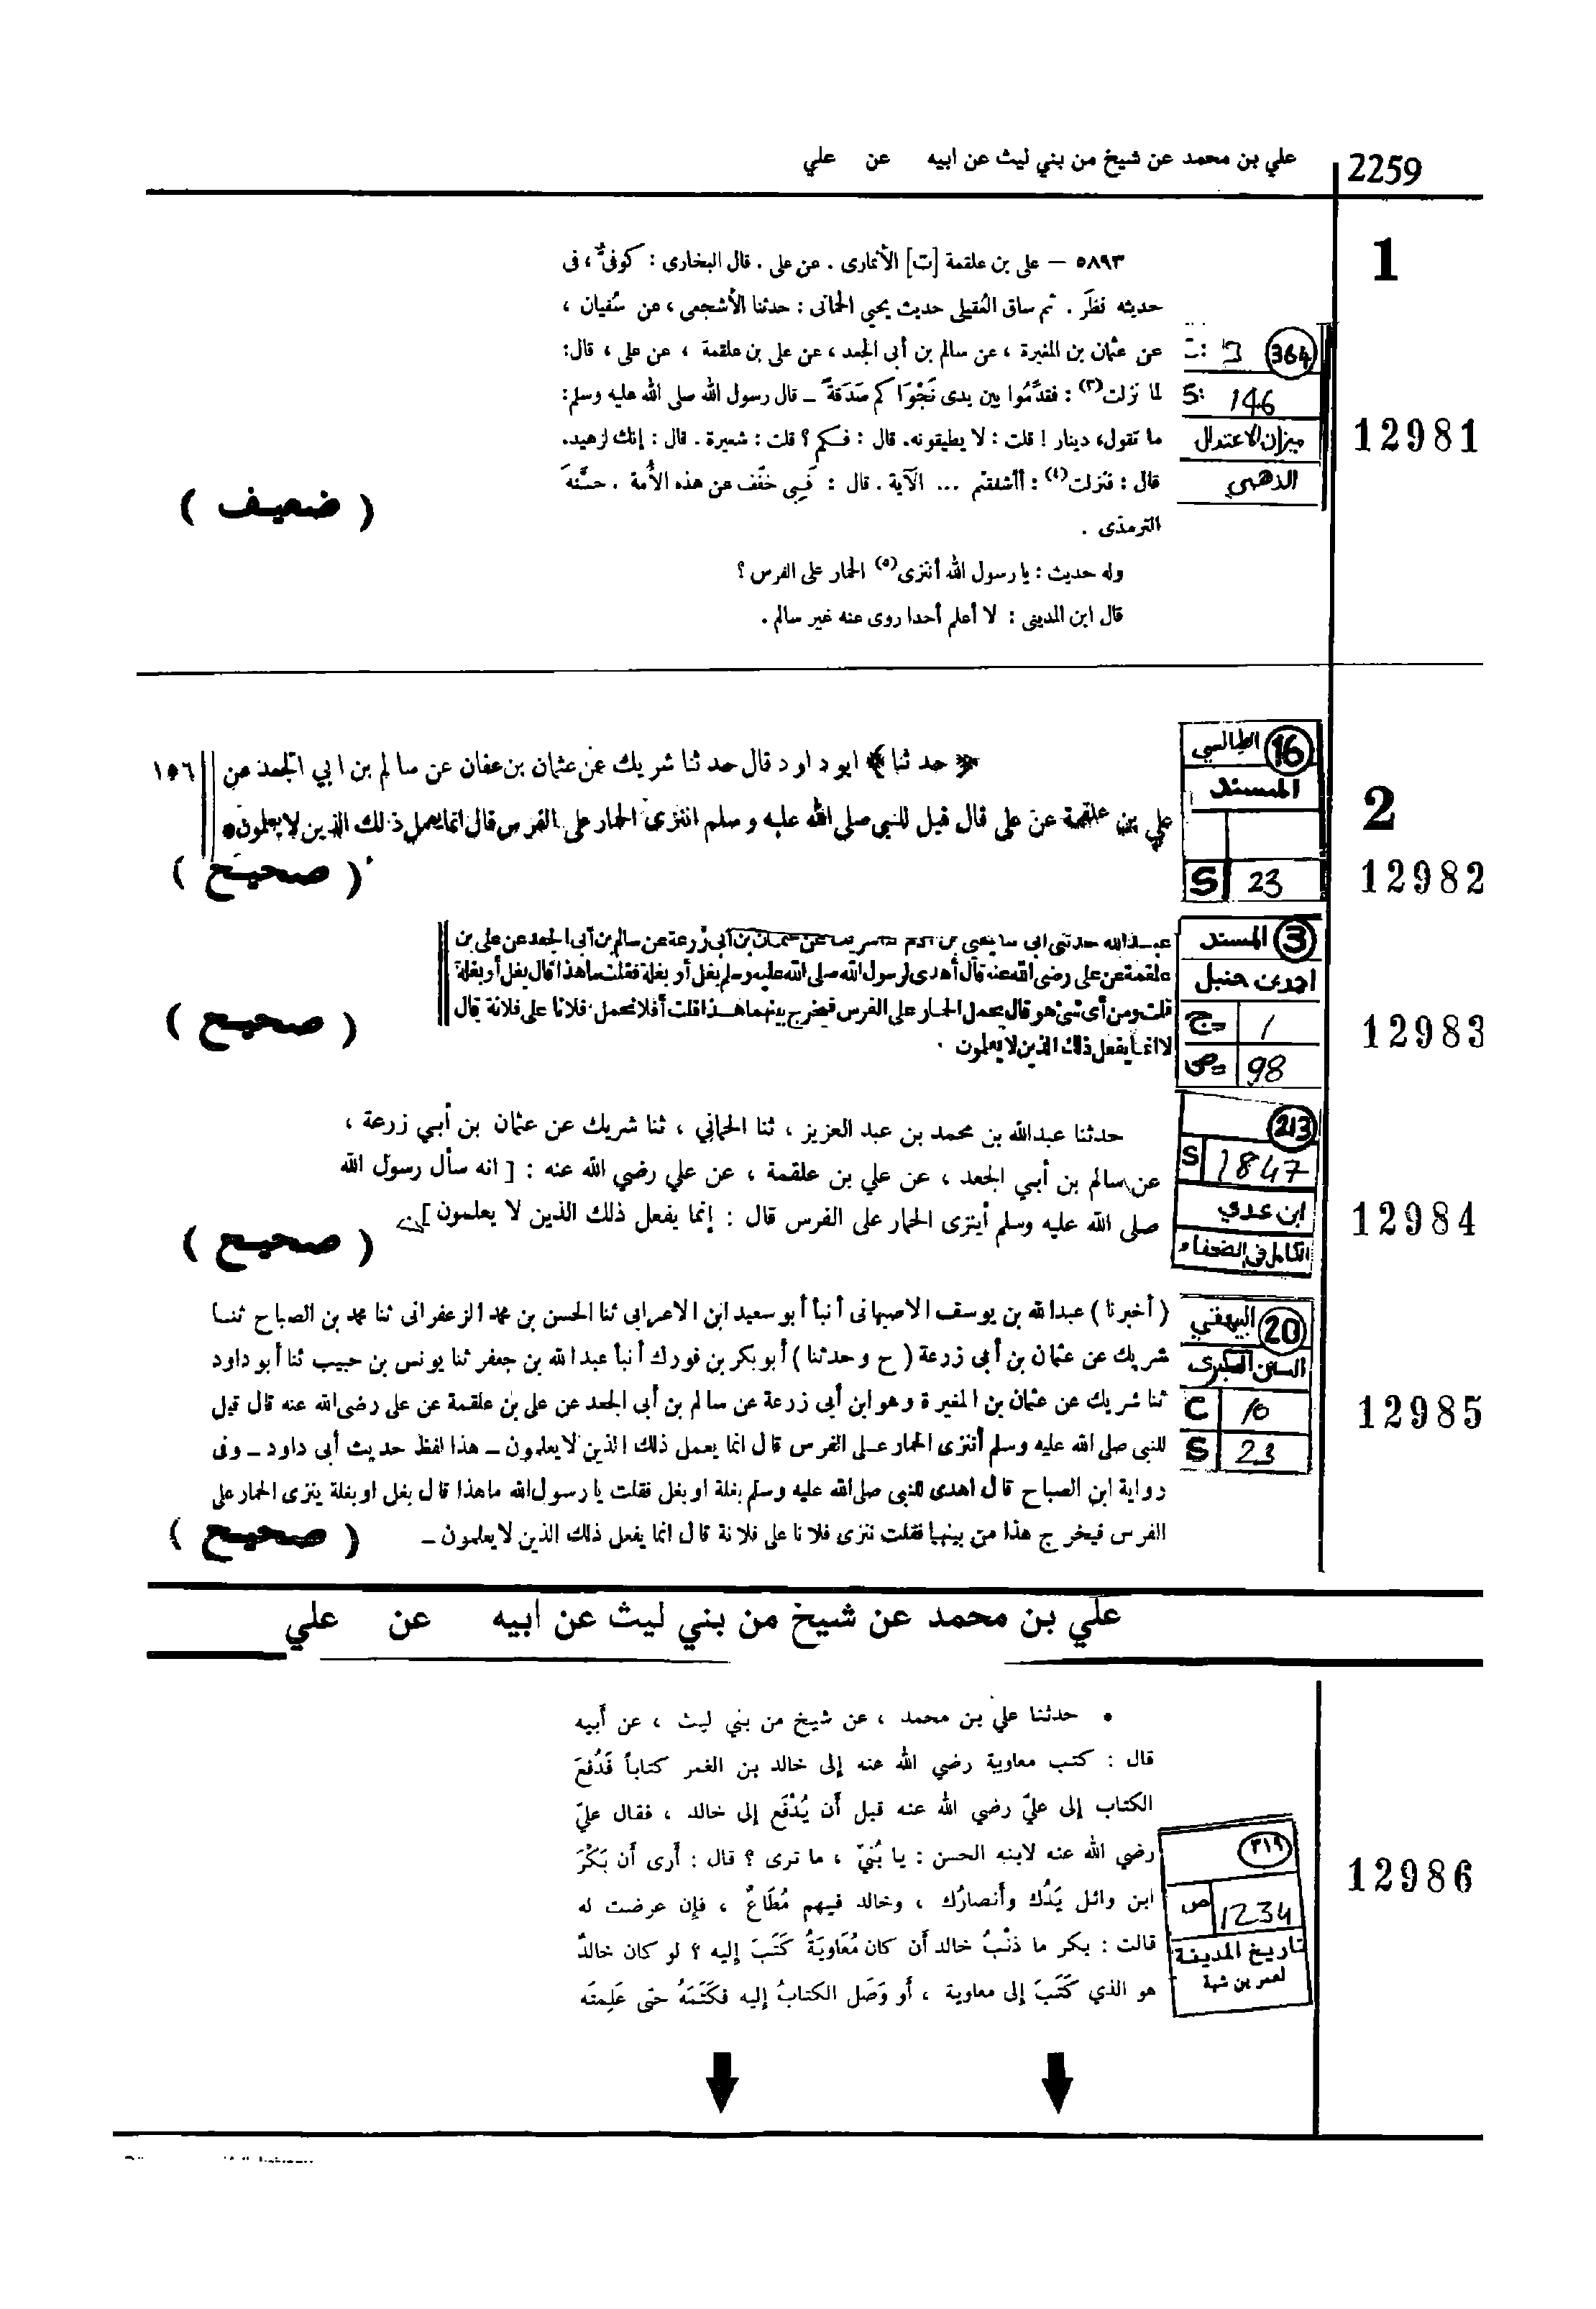 2259
علي بن محمد عن شيخ من بني ليث عن ابيه عن علي
1
٥٨٩٣ — على بن علقمة [ت] الأنمارى . عن على . قال البخارى : كوفىّ ، فى
حديثه نظَر . ثم ساق العُقيلى حديث يحيى الحمانى : حدثنا الأشجعى ، عن سُفيان ،
عن عثمان بن المغيرة ، عن سالم بن أبى الجعد ، عن على بن علقمة ، عن على ، قال :
لما نزلت(٣) : فقدَّمُوا بين يدى نَجْوَاكم صَدَقةً — قال رسول الله صلى الله عليه وسلم :
ما تقول، دينار ! قلت : لا يطيقونه. قال : فكم ؟ قلت : شعيرة . قال : إنك لزهيد.
قال : فنزلت(٤) : أأشفقتم ... الآية . قال : فَبِى خفّف عن هذه الأمة . حسَّنه
الترمذى .
وله حديث : يا رسول الله أننزى(٥) الحمار على الفرس ؟
قال ابن المدينى : لا أعلم أحدا روى عنه غير سالم .
364
3
S: 146
ميزان الاعتدال
الذهبي
12981
( ضعيف )
2
﴿ حدثنا ﴾ ابو داود قال حدثنا شريك عن عثمان بن عفان عن سالم بن ابي الجعد عن
١٥٦
علي بن علقمة عن على قال قيل للنبي صلى الله عليه وسلم انتزى الحمار على الفرس قال انما يعمل ذلك الذين لا يعلمون
16 الطيالسي
المسند
S 23
12982
( صحيح )
عبد الله حدثنى ابى عن عثمان بن أبى زرعة عن سالم بن أبى الجعد عن على بن
علقمة عن على رضى الله عنه قال أهدى لرسول الله صلى الله عليه وسلم بغل أو بغلة فقلت ما هذا قال بغل أو بغلة
قلت ومن أى شئ هو قال يحمل الحمار على الفرس فيخرج بينهما هذا قلت أفلا نحمل فلانا على فلانة قال
لا انما يفعل ذلك الذين لا يعلمون .
3 المسند
احمد بن حنبل
ج= 1
ص= 98
12983
( صحيح )
حدثنا عبدالله بن محمد بن عبد العزيز ، ثنا الحماني ، ثنا شريك عن عثمان بن أبي زرعة ،
عن سالم بن أبي الجعد ، عن علي بن علقمة ، عن علي رضي الله عنه : [ انه سأل رسول الله
صلى الله عليه وسلم أينزى الحمار على الفرس قال : إنما يفعل ذلك الذين لا يعلمون ]
213
S 1847
ابن عدي
الكامل في الضعفاء
12984
( صحيح )
( أخبرنا ) عبدالله بن يوسف الاصبهانى أنبأ أبو سعيد ابن الاعرابى ثنا الحسن بن محمد الزعفرانى ثنا محمد بن الصباح ثنا
شريك عن عثمان بن أبى زرعة ( ح وحدثنا ) أبو بكر بن فورك أنبأ عبدالله بن جعفر ثنا يونس بن حبيب ثنا أبو داود
ثنا شريك عن عثمان بن المغيرة وهو ابن أبى زرعة عن سالم بن أبى الجعد عن على بن علقمة عن على رضى الله عنه قال قيل
للنبى صلى الله عليه وسلم أننزى الحمار على الفرس قال انما يعمل ذلك الذين لا يعلمون – هذا لفظ حديث أبى داود – وفى
رواية ابن الصباح قال اهدى للنبى صلى الله عليه وسلم بغلة او بغل فقلت يا رسول الله ما هذا قال بغل او بغلة ينزى الحمار على
الفرس فيخرج هذا من بينهما فقلت ننزى فلانا على فلانة قال انما يفعل ذلك الذين لا يعلمون –
20 البيهقي
السنن الكبرى
C 10
S 23
12985
( صحيح )
علي بن محمد عن شيخ من بني ليث عن ابيه عن علي
• حدثنا علي بن محمد ، عن شيخ من بني ليث ، عن أبيه
قال : كتب معاوية رضي الله عنه إلى خالد بن الغمر كتاباً فَدُفعَ
الكتاب إلى عليّ رضي الله عنه قبل أن يُدْفَع إلى خالد ، فقال عليّ
رضي الله عنه لابنه الحسن : يا بُنيّ ، ما ترى ؟ قال : أرى أن بَكْرَ
ابن وائل يَدُك وأنصارُك ، وخالد فيهم مُطَاعٌ ، فإن عرضت له
قالت : بكر ما ذنْبُ خالد أن كان مُعَاويَةُ كَتَبَ إليه ؟ لو كان خالدٌ
هو الذي كَتَبَ إلى معاوية ، أو وَصَل الكتابُ إليه فكَتَمَهُ حتى عَلِمتَه
٣١٩
ص 1234
تاريخ المدينة
لعمر بن شبة
12986